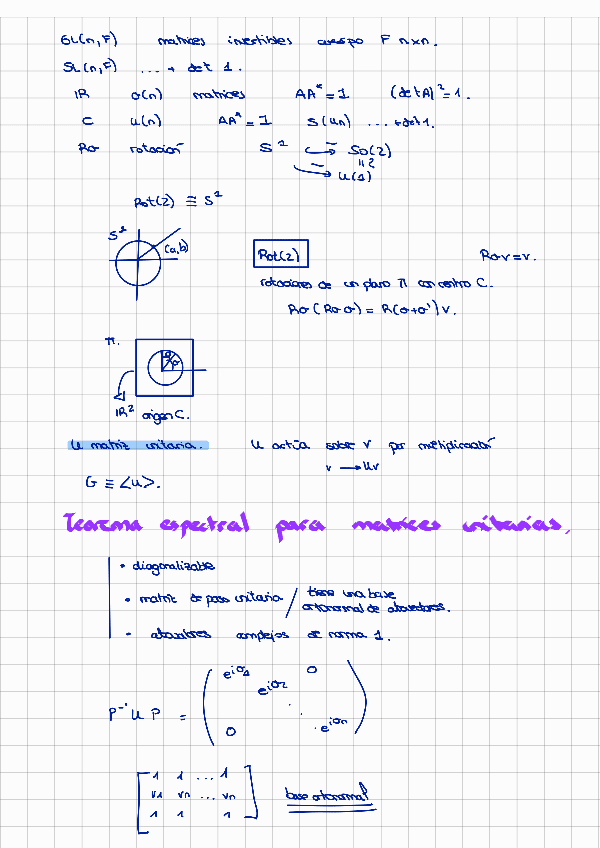 GL(n,F) matrices invertibles cuerpo F nxn.
SL(n,F) ... + det 1.
IR O(n) matrices AA* = 1 (det A)² = 1.
C U(n) AA* = 1 S(Un) ... + det 1.
Rσ rotación S¹ ↪ SO(2)
≅ U(1)
Rot(2) ≅ S¹
S¹
(a,b)
Rot(2) Rσv = v.
rotaciones de un plano π con centro C.
Rσ(Rσ'σ) = R(σ+σ')v.
π.
IR² origen C.
U matriz unitaria. U actúa sobre v por multiplicación
v → Uv
G ≡ <U>.
Teorema espectral para matrices unitarias.
• diagonalizable
• matriz de paso unitaria / tiene una base ortonormal de autovectores.
• autovalores complejos de norma 1.
P⁻¹ U P = ( e^{iσ1} e^{iσ2} 0 ⋱ 0 e^{iσn} )
1 1 ... 1
v1 vn ... vn
1 1 1
base ortonormal